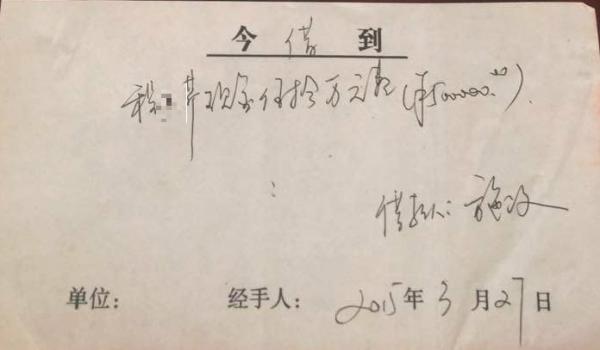 今借到
现金伍拾万元整(¥500000.00).
借款人:施
单位: 经手人: 2015年3月27日